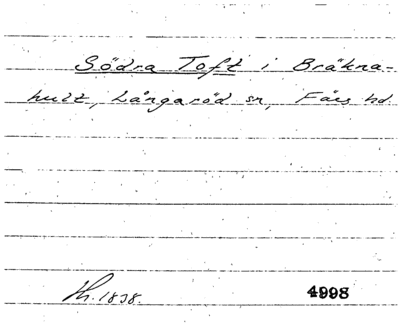 Södra Toft i Bräkna-
hult, Långaröd sn, Färs hd
Th. 1838. 4998